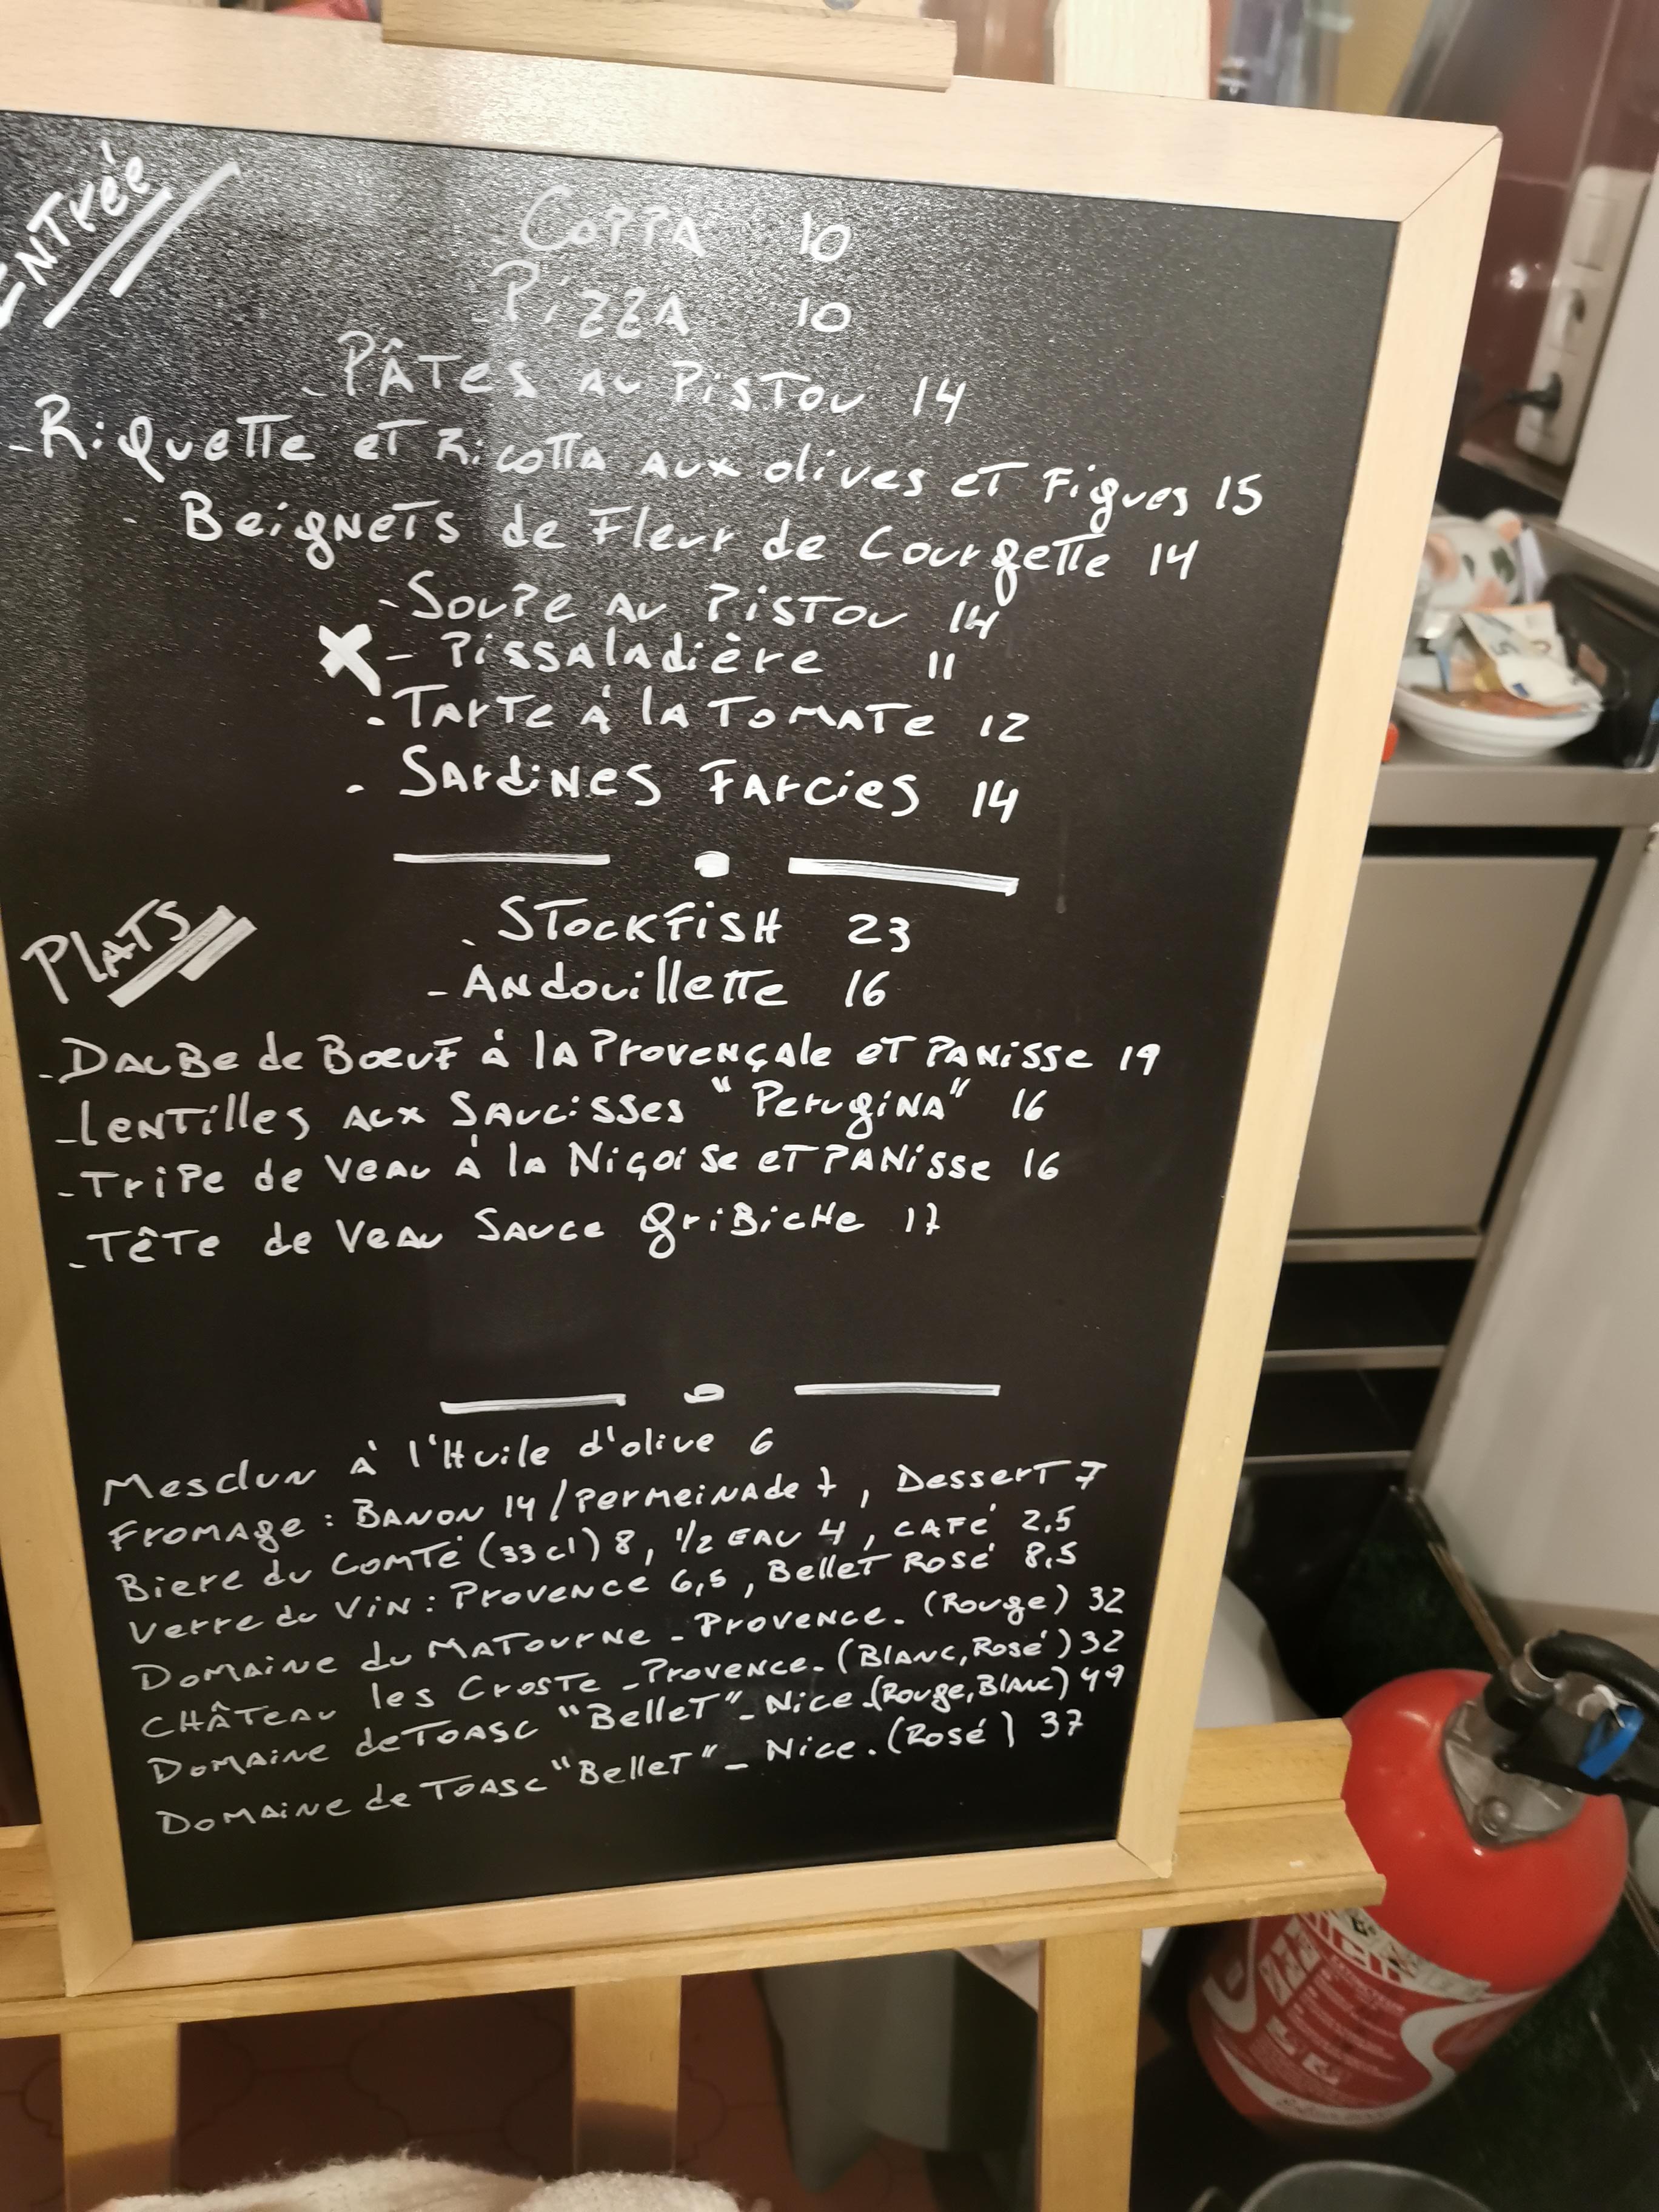 ENTRÉE
- COPPA 10
- PIZZA 10
- PÂTES AU PISTOU 14
- Riquette et Ricotta aux olives et Figues 15
- Beignets de Fleur de Courgette 14
- Soupe au Pistou 14
X - Pissaladière 11
- Tarte à la Tomate 12
- Sardines Farcies 14
PLATS
- STOCKFISH 23
- Andouillette 16
- Daube de Bœuf à la Provençale et Panisse 19
- Lentilles aux Saucisses "Perugina" 16
- Tripe de Veau à la Niçoise et Panisse 16
- Tête de Veau Sauce Gribiche 17
Mesclun à l'Huile d'olive 6
Fromage : Banon 14 / Permeinade 7, Dessert 7
Biere du Comté (33 cl) 8, 1/2 EAU 4, CAFÉ 2,5
Verre du Vin : Provence 6,5, Bellet Rosé 8,5
Domaine du Matourne - Provence. (Rouge) 32
Château les Croste - Provence. (Blanc, Rosé) 32
Domaine de Toasc "Bellet" - Nice. (Rouge, Blanc) 49
Domaine de Toasc "Bellet" - Nice. (Rosé) 37